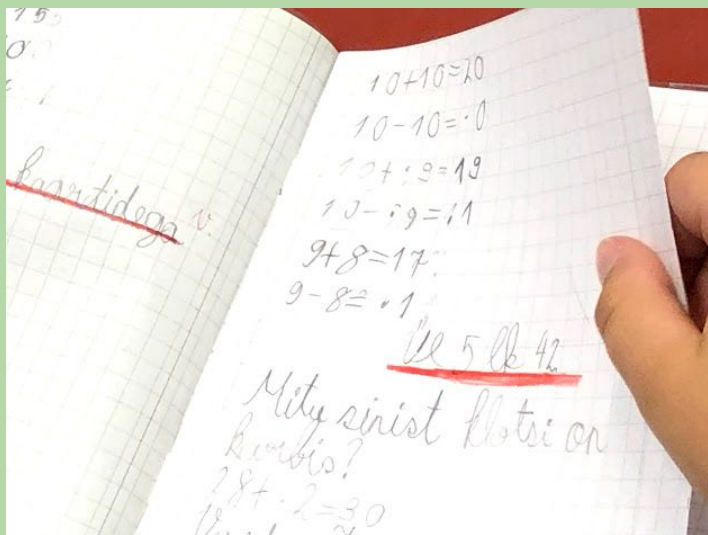 15
kaartidega
10+10=20
10-10=·0
10+·9=19
10-·9=·1
9+8=17
9-8=·1
Ül 5 lk 42
Mitu sinist klotsi on
karbis?
28+·2=30